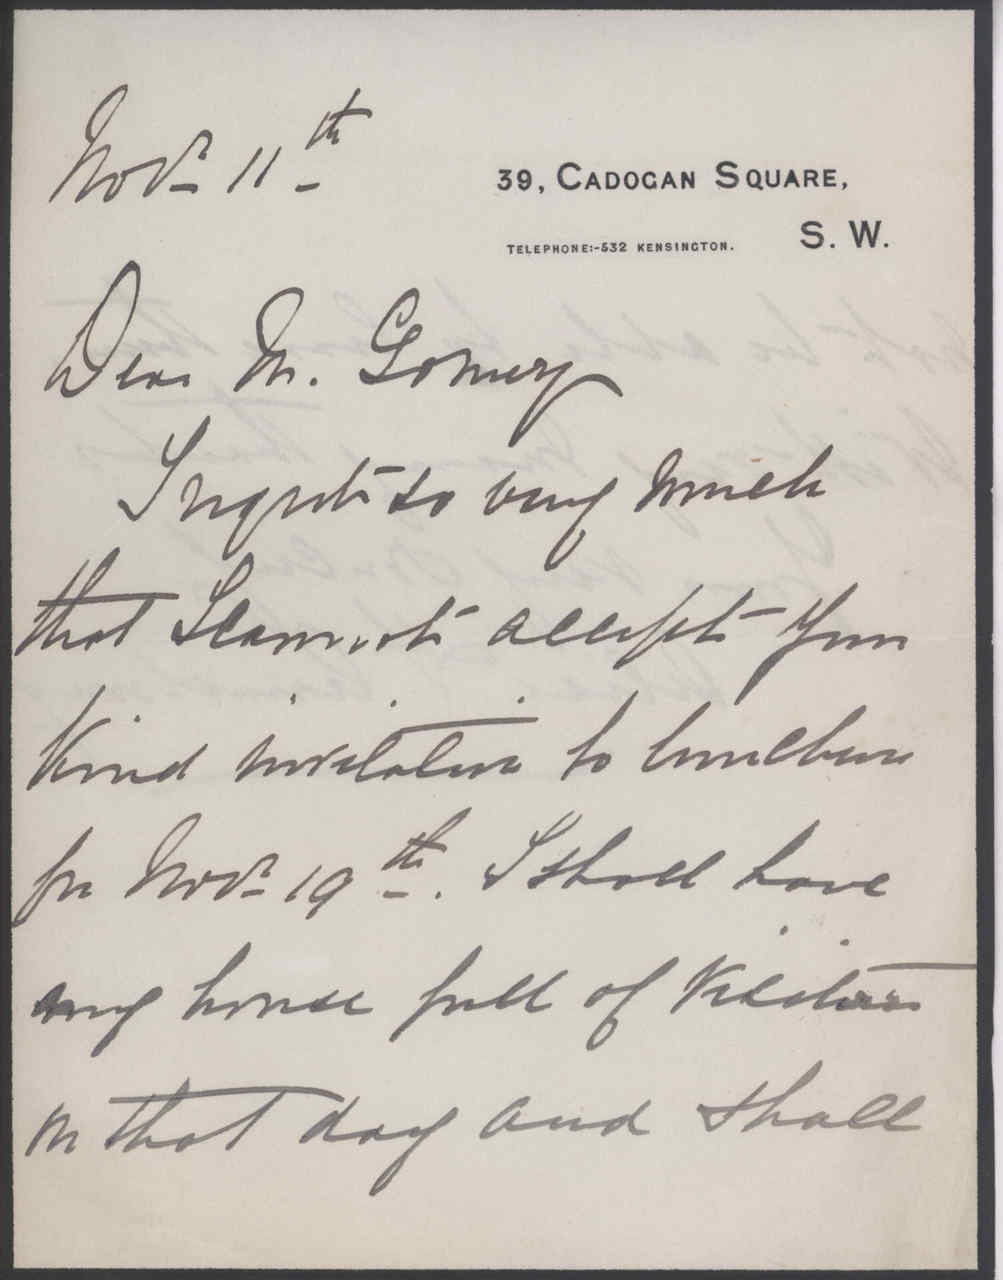 Novr 11th
39, CADOGAN SQUARE,
S. W.
TELEPHONE:-532 KENSINGTON.
Dear Mr. Gomery
I regret so very much
that I cannot accept your
kind invitation to luncheon
for Novr 19th. I shall have
my house full of visitors
on that day and shall